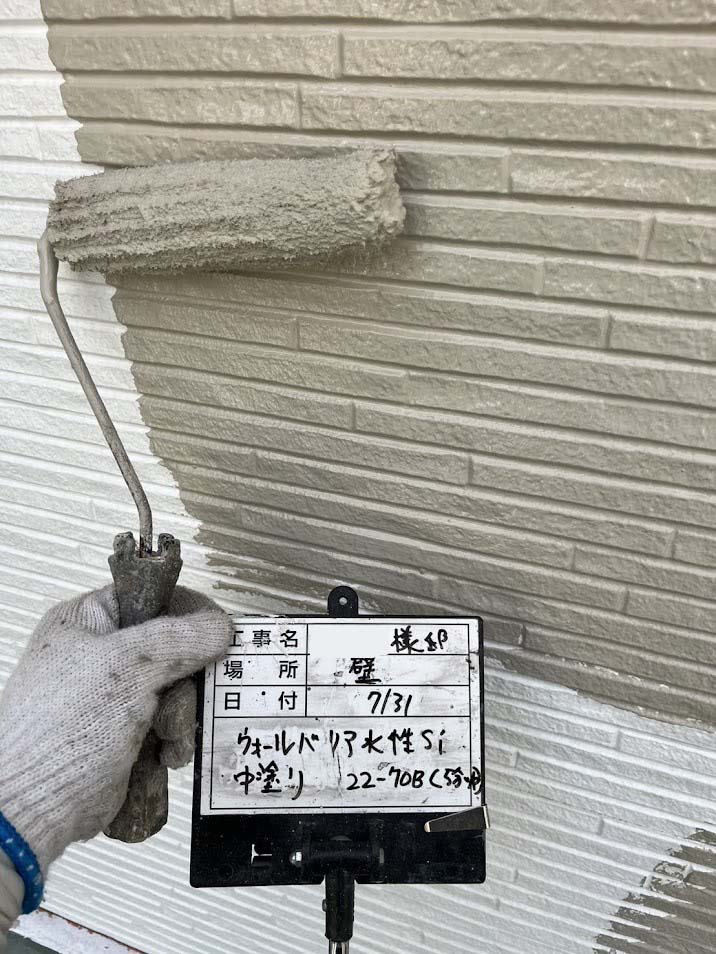 工事名 様邸
場所 壁
日付 7/31
ウォールバリア水性Si
中塗り 22-70B(5分